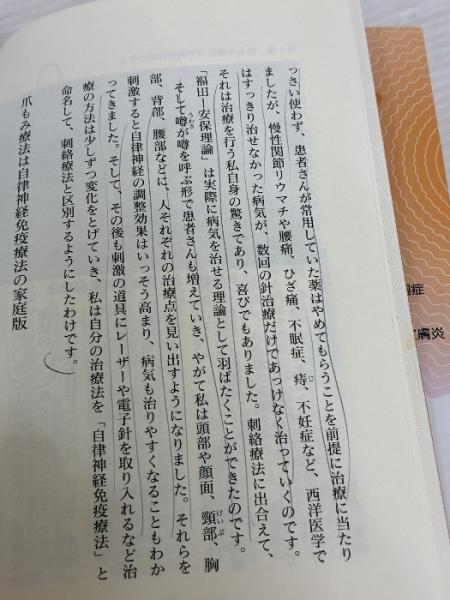 っさい使わず、患者さんが常用していた薬はやめてもらうことを前提に治療に当たり
ましたが、慢性関節リウマチや腰痛、ひざ痛、不眠症、痔、不妊症など、西洋医学で
はすっきり治せなかった病気が、数回の針治療だけであっけなく治っていくのです。
それは治療を行う私自身の驚きであり、喜びでもありました。刺絡療法に出合えて、
「福田―安保理論」は実際に病気を治せる理論として羽ばたくことができたのです。
そして噂が噂を呼ぶ形で患者さんも増えていき、やがて私は頭部や顔面、頸部、胸
部、背部、腰部などに、人それぞれの治療点を見い出すようになりました。それらを
刺激すると自律神経の調整効果はいっそう高まり、病気も治りやすくなることもわか
ってきました。そして、その後も刺激の道具にレーザーや電子針を取り入れるなど治
療の方法は少しずつ変化をとげていき、私は自分の治療法を「自律神経免疫療法」と
命名して、刺絡療法と区別するようにしたわけです。
爪もみ療法は自律神経免疫療法の家庭版
症
膚炎